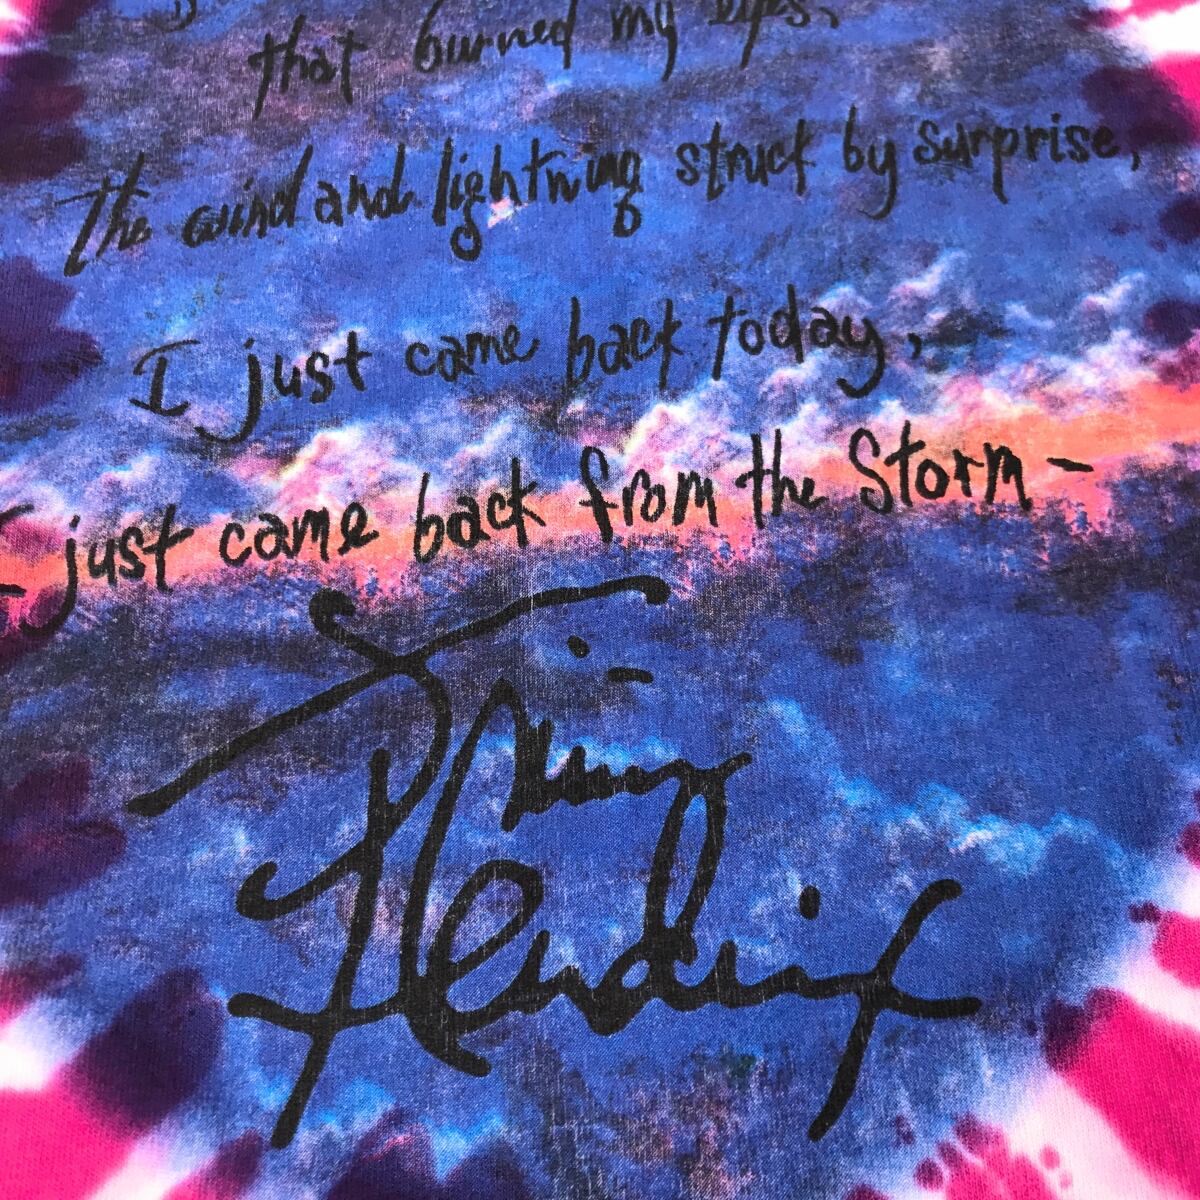 that burned my eyes,
The wind and lightning struck by surprise,
I just came back today,
I just came back from the Storm -
Jimi
Hendrix